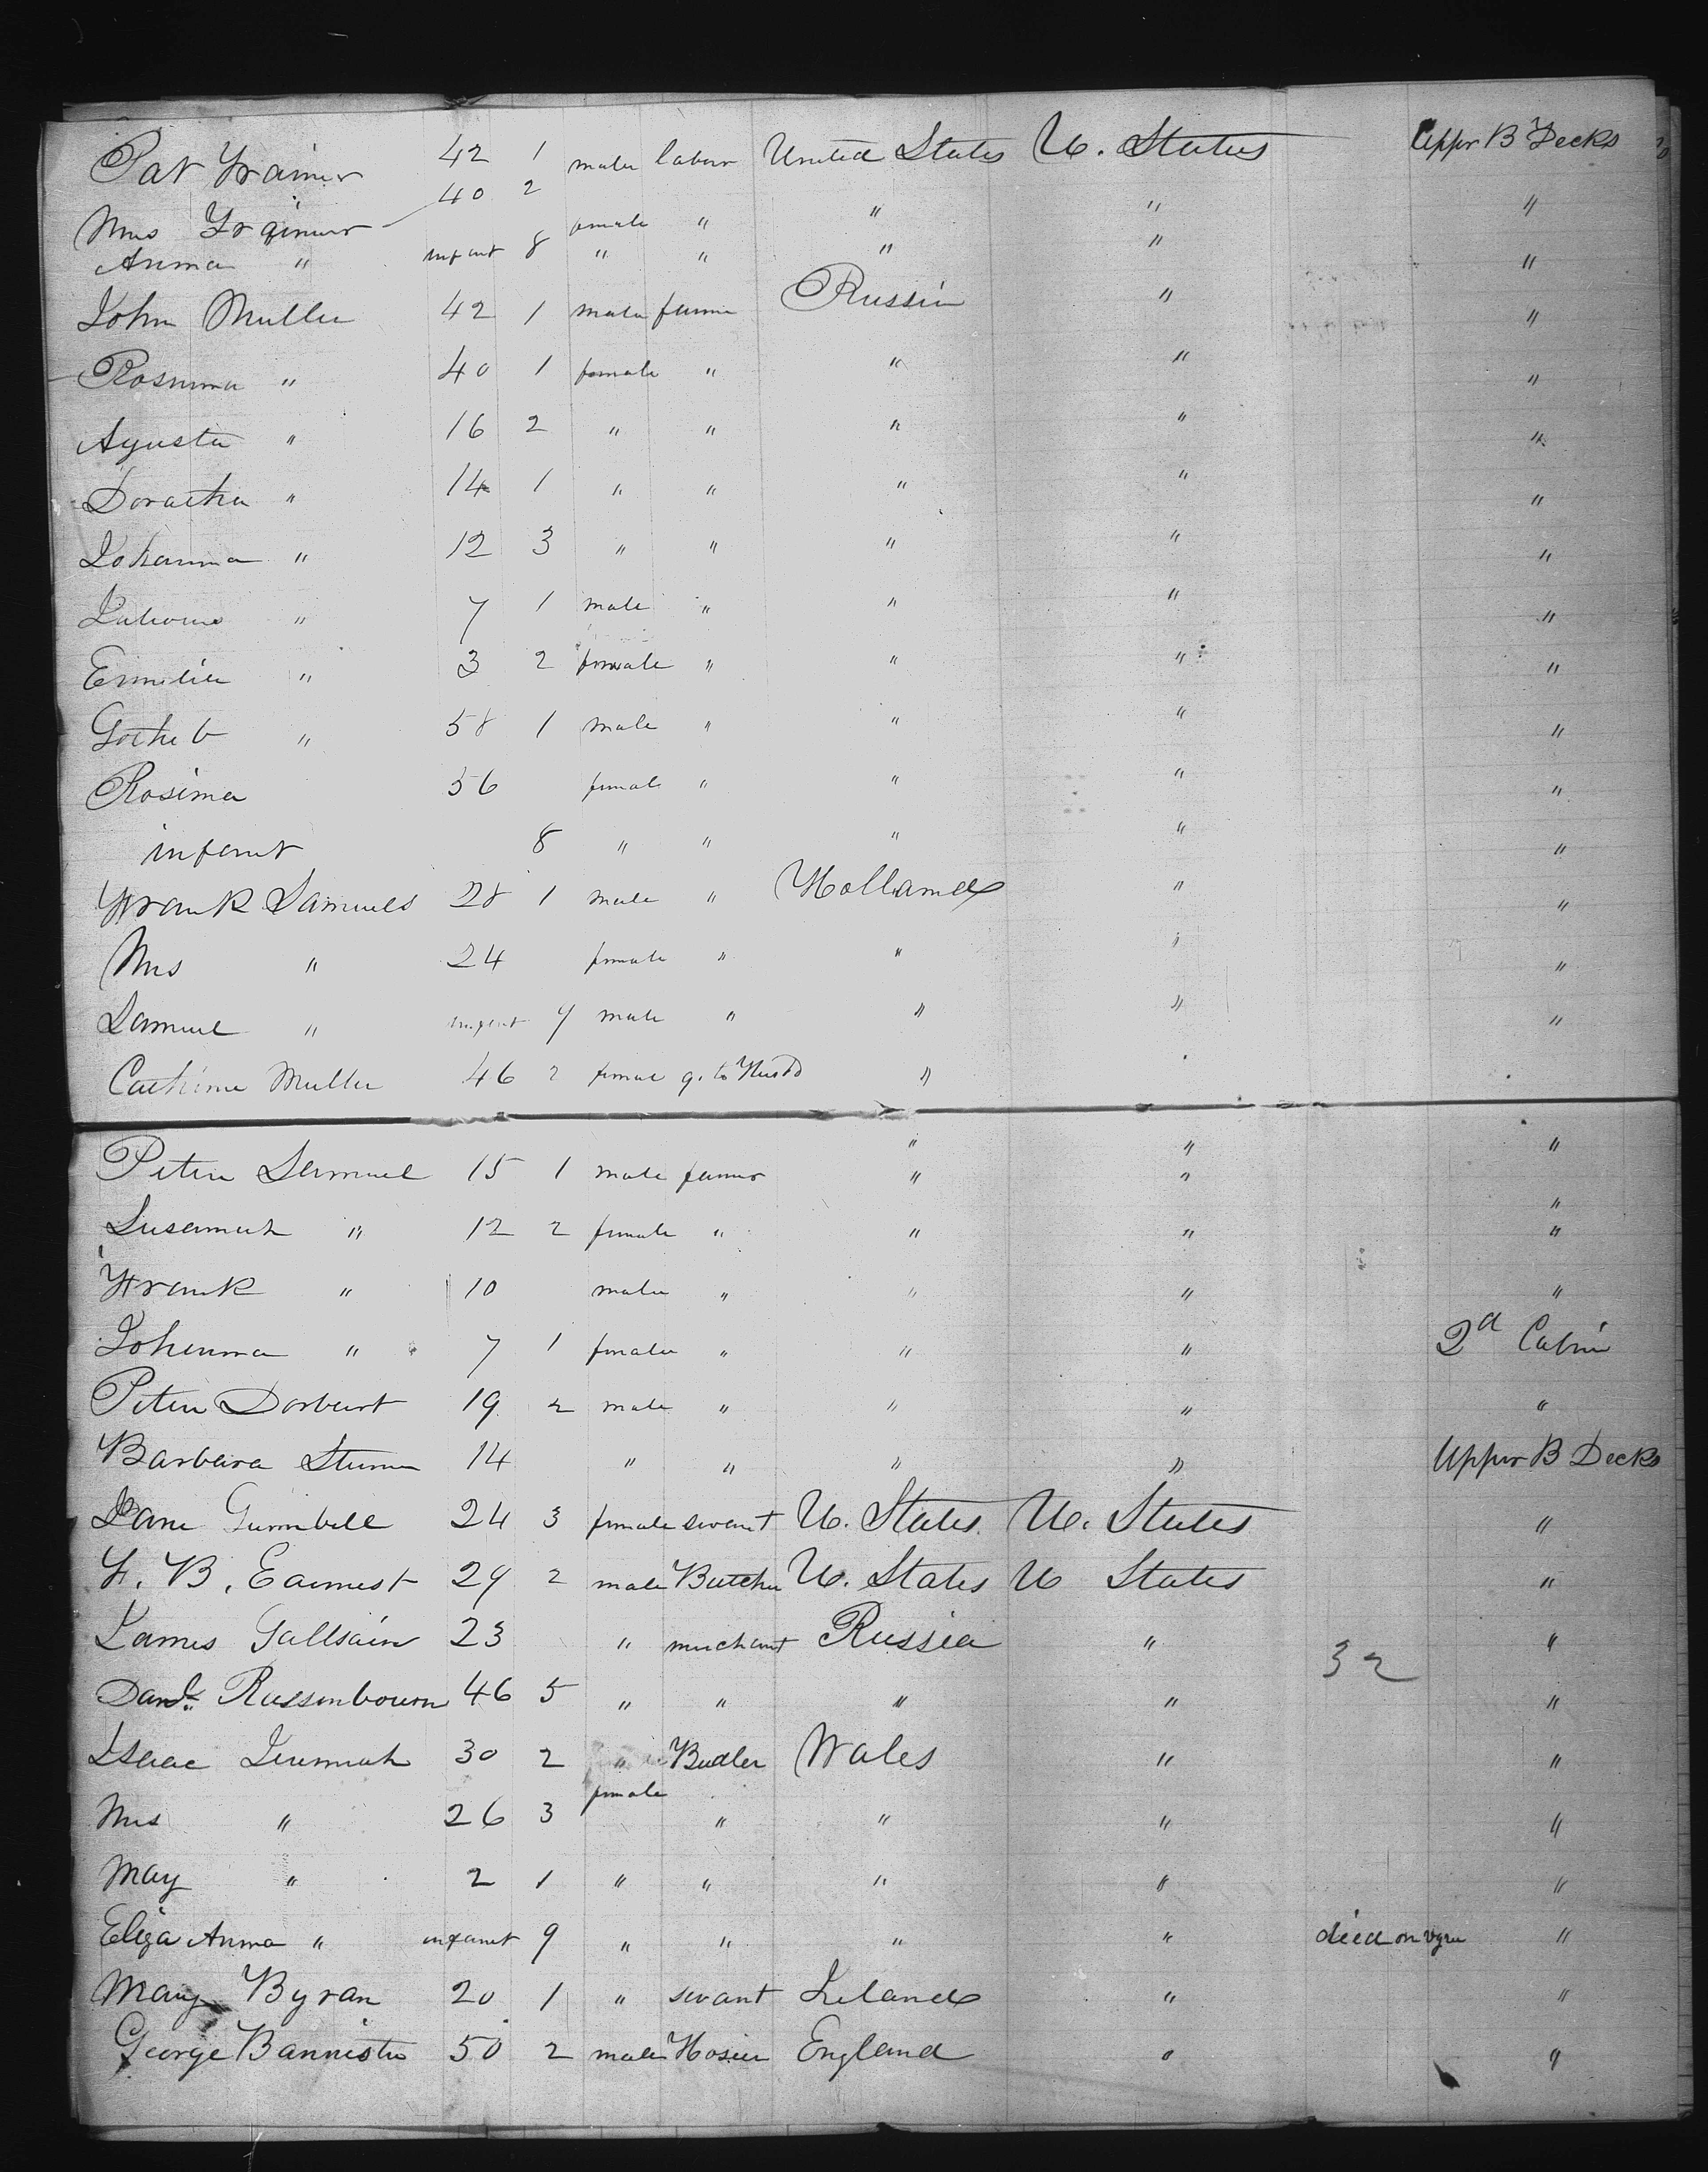 Pat Grainer 42 1 male labour United States U. States Upper B Decks
Mrs Grainer 40 2 female " " " "
Anna " infant 8 " " " " "
John Muller 42 1 male farmer Russia " "
Rosinna " 40 1 female " " " "
Agusta " 16 2 " " " " "
Doraetha " 14 1 " " " " "
Johanna " 12 3 " " " " "
" 7 1 male " " " "
Emilia " 3 2 female " " " "
Gotheb " 58 1 male " " " "
Rosima 56 female " " " "
infant 8 " " " " "
Frank Samuels 28 1 male " Holland " "
Mrs " 24 female " " " "
Samuel " infant 9 male " " " "
Cathrine Muller 46 2 female g. to Husbd "
" " "
Peter Samuel 15 1 male farmer " " "
Susannah " 12 2 female " " " "
Frank " 10 male " " " "
Johanna " 7 1 female " " " 2d Cabin
Peter Dorburt 19 2 male " " " "
Barbara Sturm 14 " " " " Upper B Decks
Jane Gumbell 24 3 female servant U. States U. States "
F. B. Earnest 29 2 male Butcher U. States U States "
James Gallsain 23 " merchant Russia " "
Danl. Russenbourn 46 5 " " " " 32 "
Isaac Jeremiah 30 2 " Butler Wales " "
Mrs " 26 3 female " " " "
May " 2 1 " " " " "
Eliza Anna " infant 9 " " " " died on vyge "
Mary Byran 20 1 " servant Ireland " "
George Bannister 50 2 male Hosier England " "